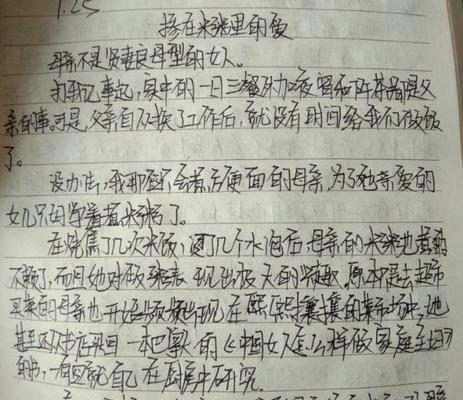 1.25
掺在米粥里的爱
母亲不是贤妻良母型的女人。
打我记事起,家中的一日三餐外加夜宵和下午茶都是父
亲的事。可是,父亲自从换了工作后,就没有时间给我们做饭
了。
没办法,我那只会煮方便面的母亲,为了她亲爱的
女儿只四学着煮米粥了。
在烧焦了几次米饭,烫了几个水泡后,母亲的米粥也煮的
不赖了,而且她对做粥表现出极大的兴趣。原本只是去超市
买菜的母亲也开始频频出现在熙熙攘攘的菜市场中,她
甚至还从书店买回一本巴掌大的《中国女人怎么样做家庭主妇》
的书,一有空就自己在厨房中研究。